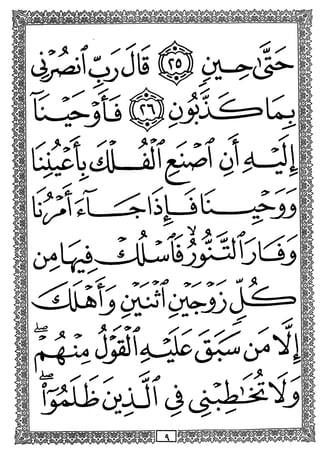 حَتَّىٰ حِينٍ ﴿٢٥﴾ قَالَ رَبِّ ٱنصُرْنِي
بِمَا كَذَّبُونِ ﴿٢٦﴾ فَأَوْحَيْنَآ
إِلَيْهِ أَنِ ٱصْنَعِ ٱلْفُلْكَ بِأَعْيُنِنَا
وَوَحْيِنَا فَإِذَا جَآءَ أَمْرُنَا
وَفَارَ ٱلتَّنُّورُ ۙ فَٱسْلُكْ فِيهَا مِن
كُلٍّ زَوْجَيْنِ ٱثْنَيْنِ وَأَهْلَكَ
إِلَّا مَن سَبَقَ عَلَيْهِ ٱلْقَوْلُ مِنْهُمْ ۖ
وَلَا تُخَٰطِبْنِي فِي ٱلَّذِينَ ظَلَمُوٓا۟ ۖ
٩